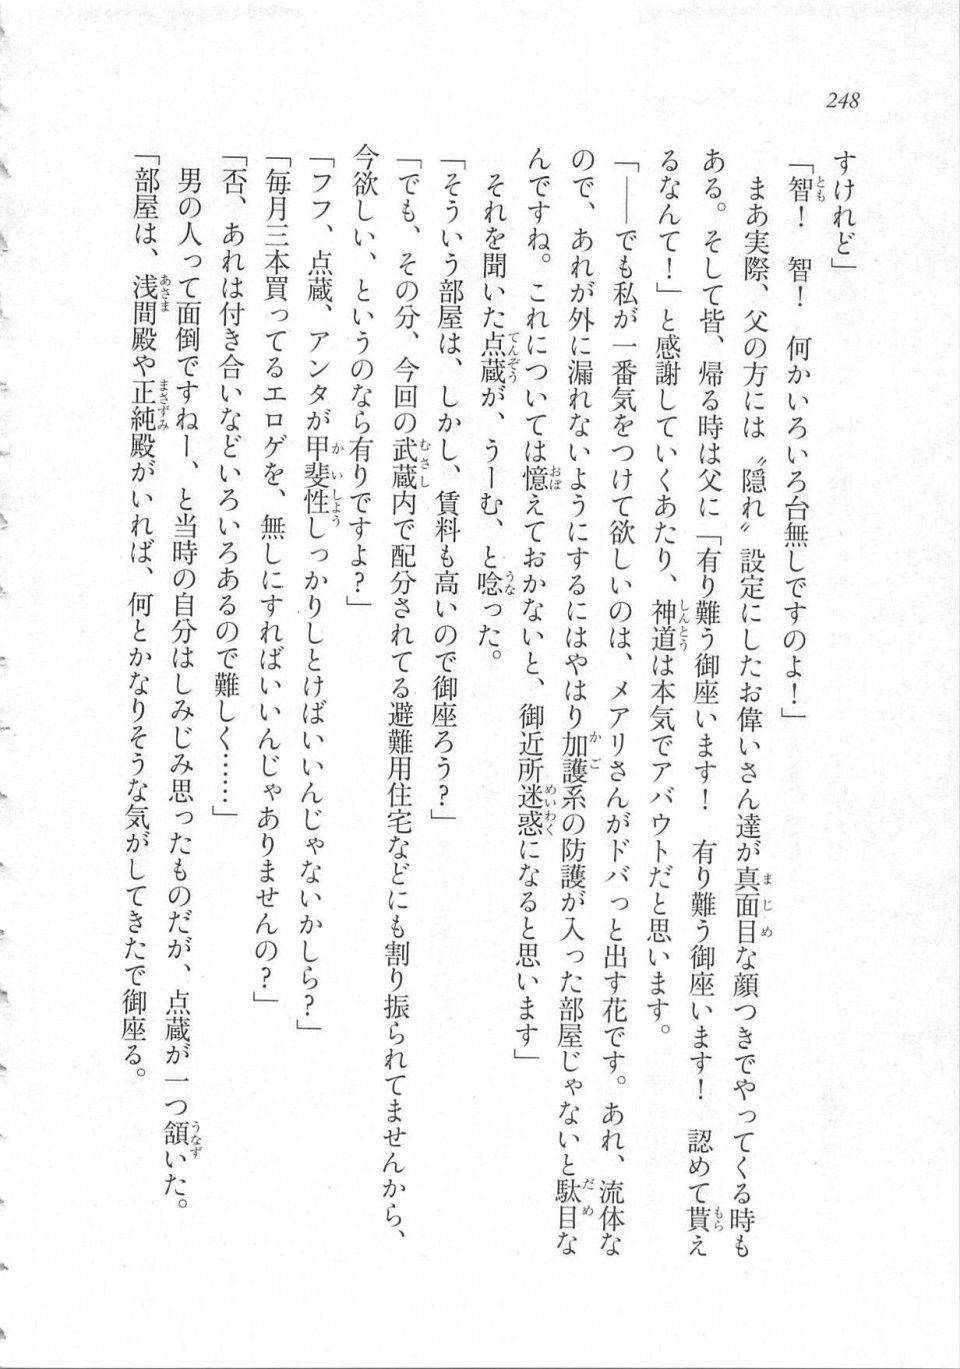 248
すけれど」
「智！　智！　何かいろいろ台無しですのよ！」
　まあ実際、父の方には〝隠れ〟設定にしたお偉いさん達が真面目な顔つきでやってくる時も
ある。そして皆、帰る時は父に「有り難う御座います！　有り難う御座います！　認めて貰え
るなんて！」と感謝していくあたり、神道は本気でアバウトだと思います。
「――でも私が一番気をつけて欲しいのは、メアリさんがドバっと出す花です。あれ、流体な
ので、あれが外に漏れないようにするにはやはり加護系の防護が入った部屋じゃないと駄目な
んですね。これについては憶えておかないと、御近所迷惑になると思います」
　それを聞いた点蔵が、うーむ、と唸った。
「そういう部屋は、しかし、賃料も高いので御座ろう？」
「でも、その分、今回の武蔵内で配分されてる避難用住宅などにも割り振られてませんから、
今欲しい、というのなら有りですよ？」
「フフ、点蔵、アンタが甲斐性しっかりしとけばいいんじゃないかしら？」
「毎月三本買ってるエロゲを、無しにすればいいんじゃありませんの？」
「否、あれは付き合いなどいろいろあるので難しく……」
　男の人って面倒ですねー、と当時の自分はしみじみ思ったものだが、点蔵が一つ頷いた。
「部屋は、浅間殿や正純殿がいれば、何とかなりそうな気がしてきたで御座る。